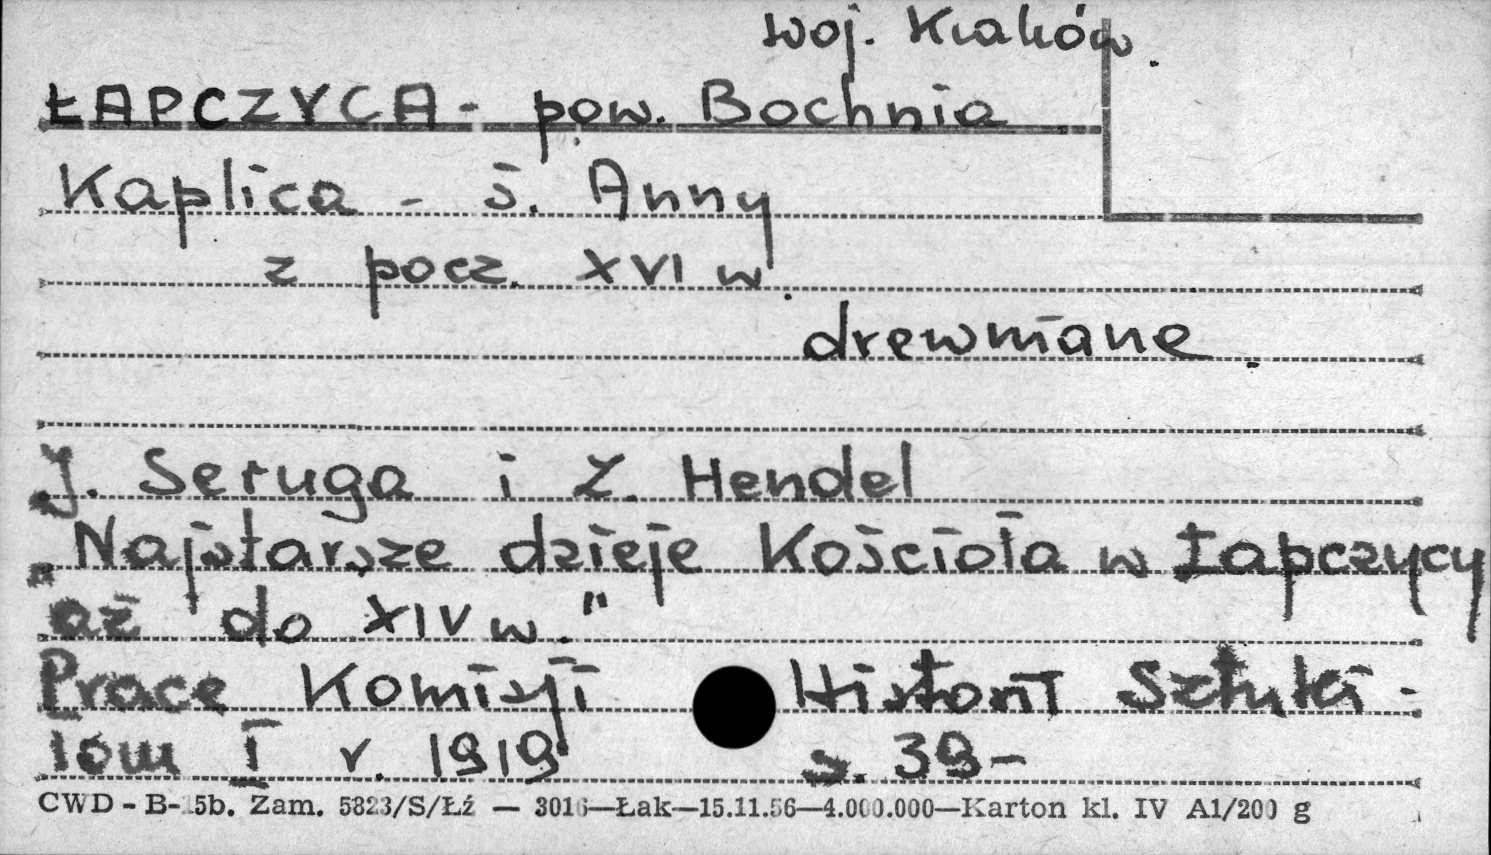 woj. Kraków.
ŁAPCZYCA - pow. Bochnia
Kaplica - ś. Anny
z pocz. XVI w.
drewniane.
J. Seruga i Z. Hendel
„Najstarsze dzieje Kościoła w Łapczycy
aż do XIV w."
Prace Komisji Historii Sztuki -
tom I r. 1919 s. 39-
CWD - B-15b. Zam. 5823/S/Łź — 3016—Łak—15.11.56—4.000.000—Karton kl. IV A1/200 g